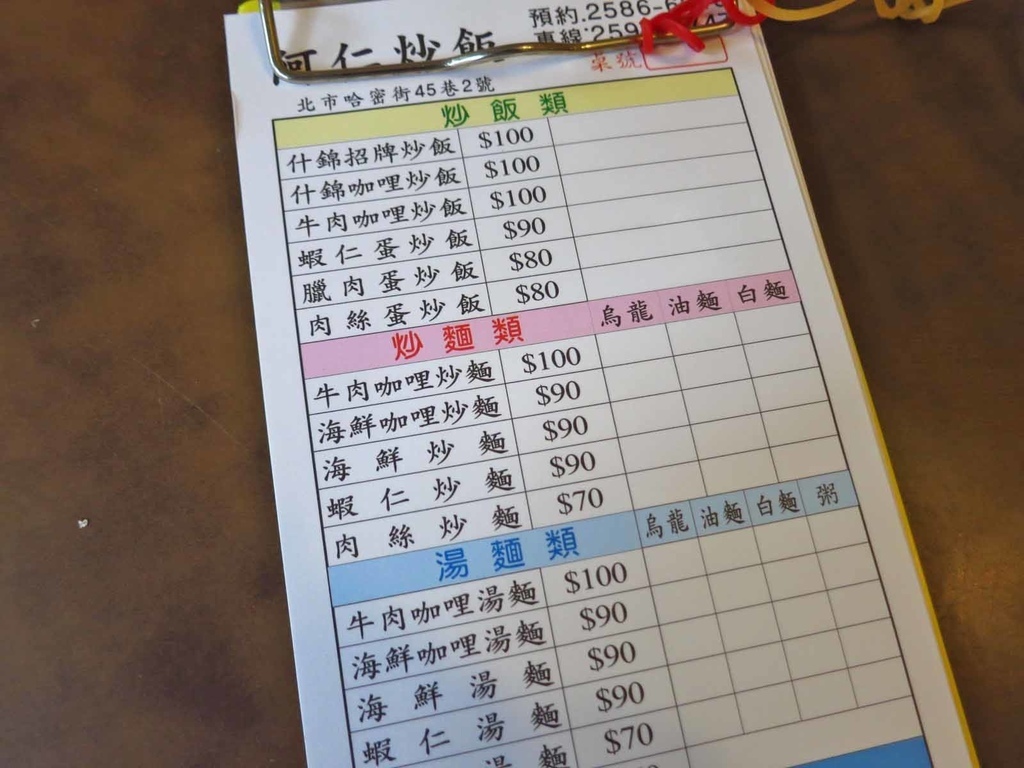 阿仁炒飯
預約.2586-6
專線:259
桌號
北市哈密街45巷2號
炒飯類
什錦招牌炒飯 $100
什錦咖哩炒飯 $100
牛肉咖哩炒飯 $100
蝦仁蛋炒飯 $90
臘肉蛋炒飯 $80
肉絲蛋炒飯 $80
炒麵類 烏龍 油麵 白麵
牛肉咖哩炒麵 $100
海鮮咖哩炒麵 $90
海鮮炒麵 $90
蝦仁炒麵 $90
肉絲炒麵 $70
湯麵類 烏龍 油麵 白麵 粥
牛肉咖哩湯麵 $100
海鮮咖哩湯麵 $90
海鮮湯麵 $90
蝦仁湯麵 $90
湯麵 $70